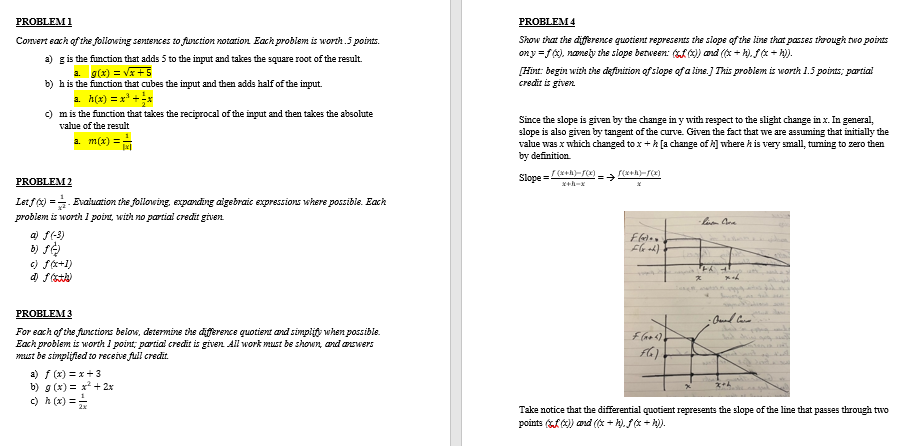 PROBLEM 1
Convert each of the following sentences to function notation. Each problem is worth .5 points.
a) g is the function that adds 5 to the input and takes the square root of the result.
a. g(x) = √x + 5
b) h is the function that cubes the input and then adds half of the input.
a. h(x) = x³ + 1/2 x
c) m is the function that takes the reciprocal of the input and then takes the absolute
value of the result
a. m(x) = 1/|x|
PROBLEM 2
Let f (x) = 1/x². Evaluation the following, expanding algebraic expressions where possible. Each
problem is worth 1 point, with no partial credit given.
a) f(-3)
c) f(x+1)
d) f(x+h)
PROBLEM 3
For each of the functions below, determine the difference quotient and simplify when possible.
Each problem is worth 1 point; partial credit is given. All work must be shown, and answers
must be simplified to receive full credit.
a) f (x) = x + 3
b) g (x) = x² + 2x
c) h (x) = 1/2x
PROBLEM 4
Show that the difference quotient represents the slope of the line that passes through two points
on y = f (x), namely the slope between: (x,f (x)) and ((x + h), f (x + h)).
[Hint: begin with the definition of slope of a line.] This problem is worth 1.5 points; partial
credit is given.
Since the slope is given by the change in y with respect to the slight change in x. In general,
slope is also given by tangent of the curve. Given the fact that we are assuming that initially the
value was x which changed to x + h [a change of h] where h is very small, turning to zero then
by definition.
Slope = f(x+h)−f(x)/x+h−x = → f(x+h)−f(x)/x
F(x)
F(x+h)
x
x+h
F(x+h)
F(x)
x
x+h
Take notice that the differential quotient represents the slope of the line that passes through two
points (x,f (x)) and ((x + h), f (x + h)).